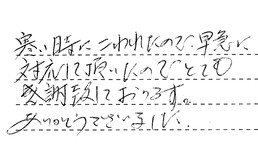 寒い時にこわれたので早急に
対応して頂いたのでとても
感謝致しております。
ありがとうございました。